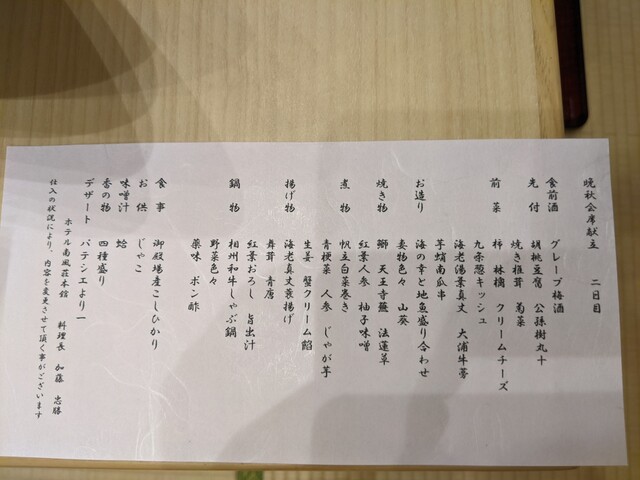 晩秋会席献立　二日目
食前酒　グレープ梅酒
先付　胡桃豆腐　公孫樹丸十
焼き椎茸　菊菜
前菜　柿　林檎　クリームチーズ
九条葱キッシュ
海老湯葉真丈　大浦牛蒡
芋蛸南瓜串
お造り　海の幸と地魚盛り合わせ
妻物色々　山葵
焼き物　鰤　天王寺蕪　法蓮草
紅葉人参　柚子味噌
煮物　帆立白菜巻き
青梗菜　人参　じゃが芋
生姜　蟹クリーム餡
揚げ物　海老真丈蓑揚げ
舞茸　青唐
紅葉おろし　旨出汁
鍋物　相州和牛しゃぶ鍋
野菜色々
薬味　ポン酢
食事　御殿場産こしひかり
お供　じゃこ
味噌汁　蛤
香の物　四種盛り
デザート　パティシエより
ホテル南風荘本館　料理長　加藤　忠勝
仕入の状況により、内容を変更させて頂く事がございます